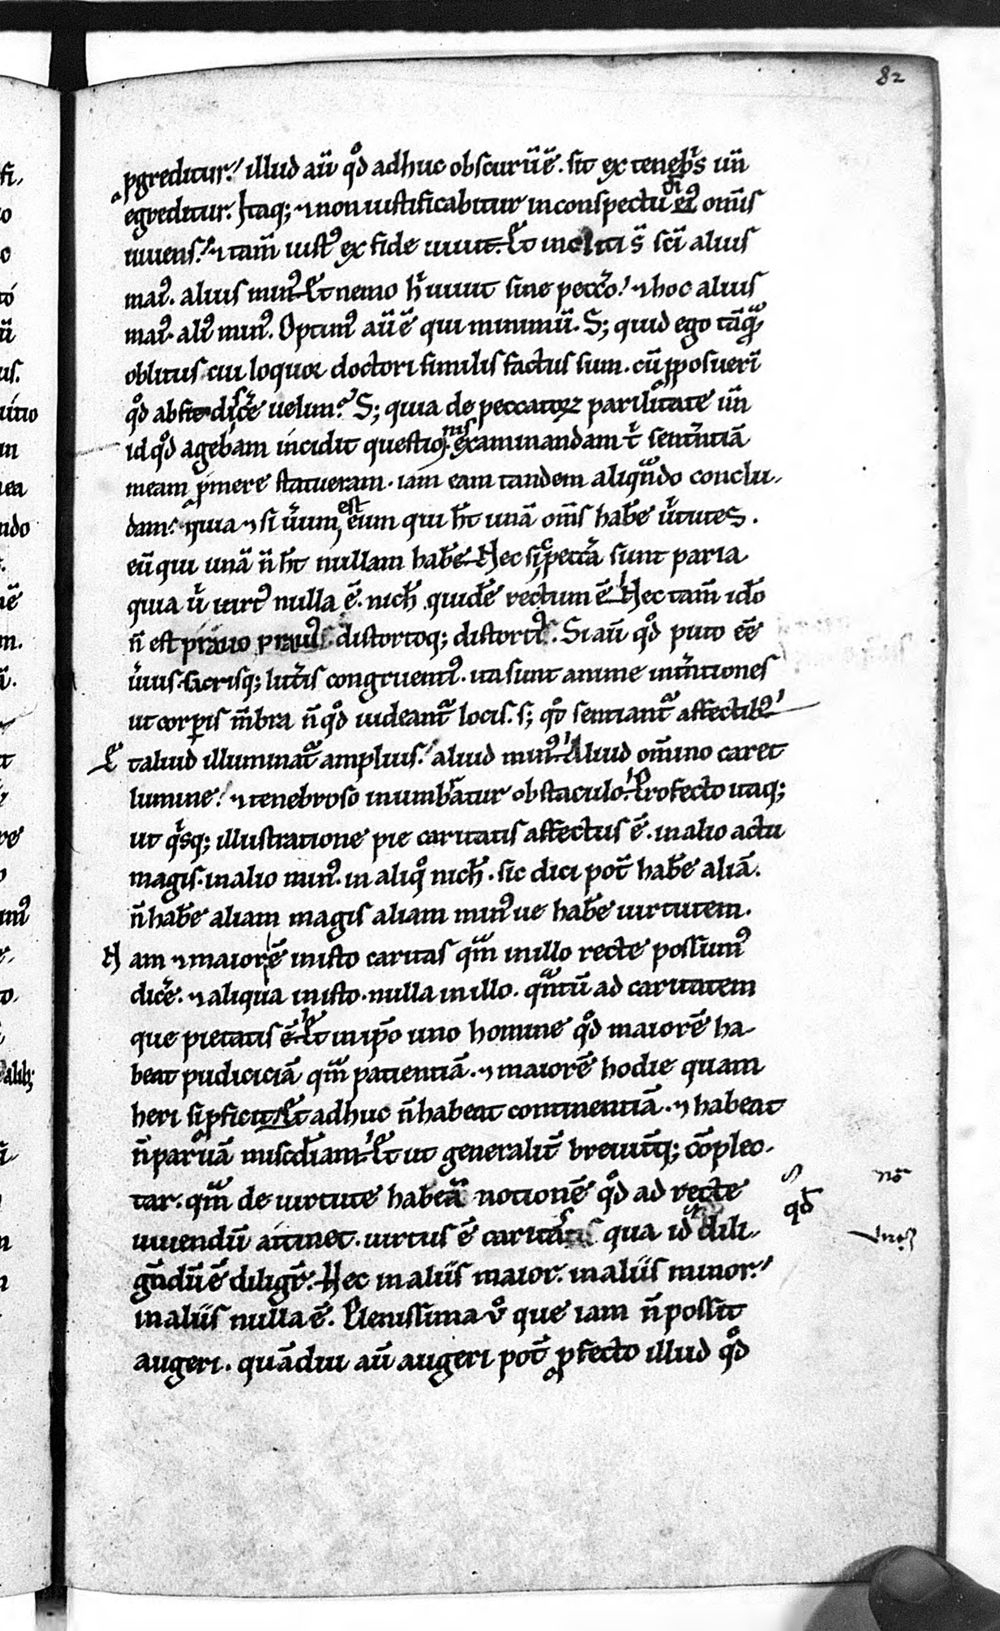 82
ꝓgreditur. illud aū qd̊ adhuc obscurū ē. sit ex tenebris un̄
egreditur. Itaq; ⁊ non iustificabitur in conspectu ei⁹ om̄is
uiuens. ⁊ tam̄ iust⁹ ex fide uiuit. Et in s̄ sc̄i alius
mag⁹. alius min⁹. Et nemo h̄ uiuit sine pecc̄o. ⁊ hoc alius
mag⁹ ali⁹ min⁹. Optim⁹ aū ē qui minimū. S; quid ego tāq̄
oblitus cui loquor doctori similis factus sum. cū ꝓposuerī
qd̊ abste discere uelim. S; quia de peccatoꝝ parilitate un̄
id qd̊ agebam incidit questio. examinandam t̄ sentn̄tiā
meam ꝓmere statueram. iam eam tandem aliquando conclu-
dam. quia ⁊ si uerum est eum qui h̄t unā om̄s hab̄e u̓tutes.
eū qui unā n̄ h̄t nullam hab̄e. Nec sic pecc̄a sunt paria
quia u̓ uirt⁹ nulla ē. nich̄ quidē rectum ē. Nec tam̄ id̄o
n̄ est prauo prauius distortoq; distorti⁹. Si aū qd̊ puto eē
u̓ius sacrisq; litt̄is congruenti⁹. ita sunt anime intn̄tiones
ut corꝑis m̄bra n̄ qd̊ uideant̄ locis. s; qd̊ sentiant̄ affectib⁹
Et aliud illuminat̄ amplius. aliud min⁹. Aliud om̄ino caret
lumine. ⁊ tenebroso inumbratur obstaculo. Profecto itaq;
ut q̓sq; illustratione pie caritatis affectus ē. in alio actu
magis. in alio min⁹. in aliq̊ nich̄. sic dici pot̄ hab̄e aliā.
n̄ hab̄e aliam magis aliam min⁹ue hab̄e uirtutem.
Nam ⁊ maior ē in isto caritas qm̄ in illo recte possum⁹
dic̄e. ⁊ aliqua in isto. nulla in illo. quantū ad caritatem
que pietatis ē. Et in ip̄o uno homine qd̊ maiorē ha-
beat pudiciciā qm̄ patientiā. ⁊ maiorē hodie quam
heri si ꝓficit. Et adhuc n̄ habeat continentiā. ⁊ habeat
n̄ paruā mis̄cdiam. Et ut generalit̄ breuit̄q; cōplec-
tar. qm̄ de uirtute habeā notionē qd̊ ad recte
uiuendū attinet. uirtus ē caritas qua id qd̄ dili-
gn̄dū ē diligit̄. Hec in aliis maior. in aliis minor.
in aliis nulla ē. Plenissima u̓o que iam n̄ possit
augeri. quādiu aū augeri pot̄ ꝓfecto illud qd̊